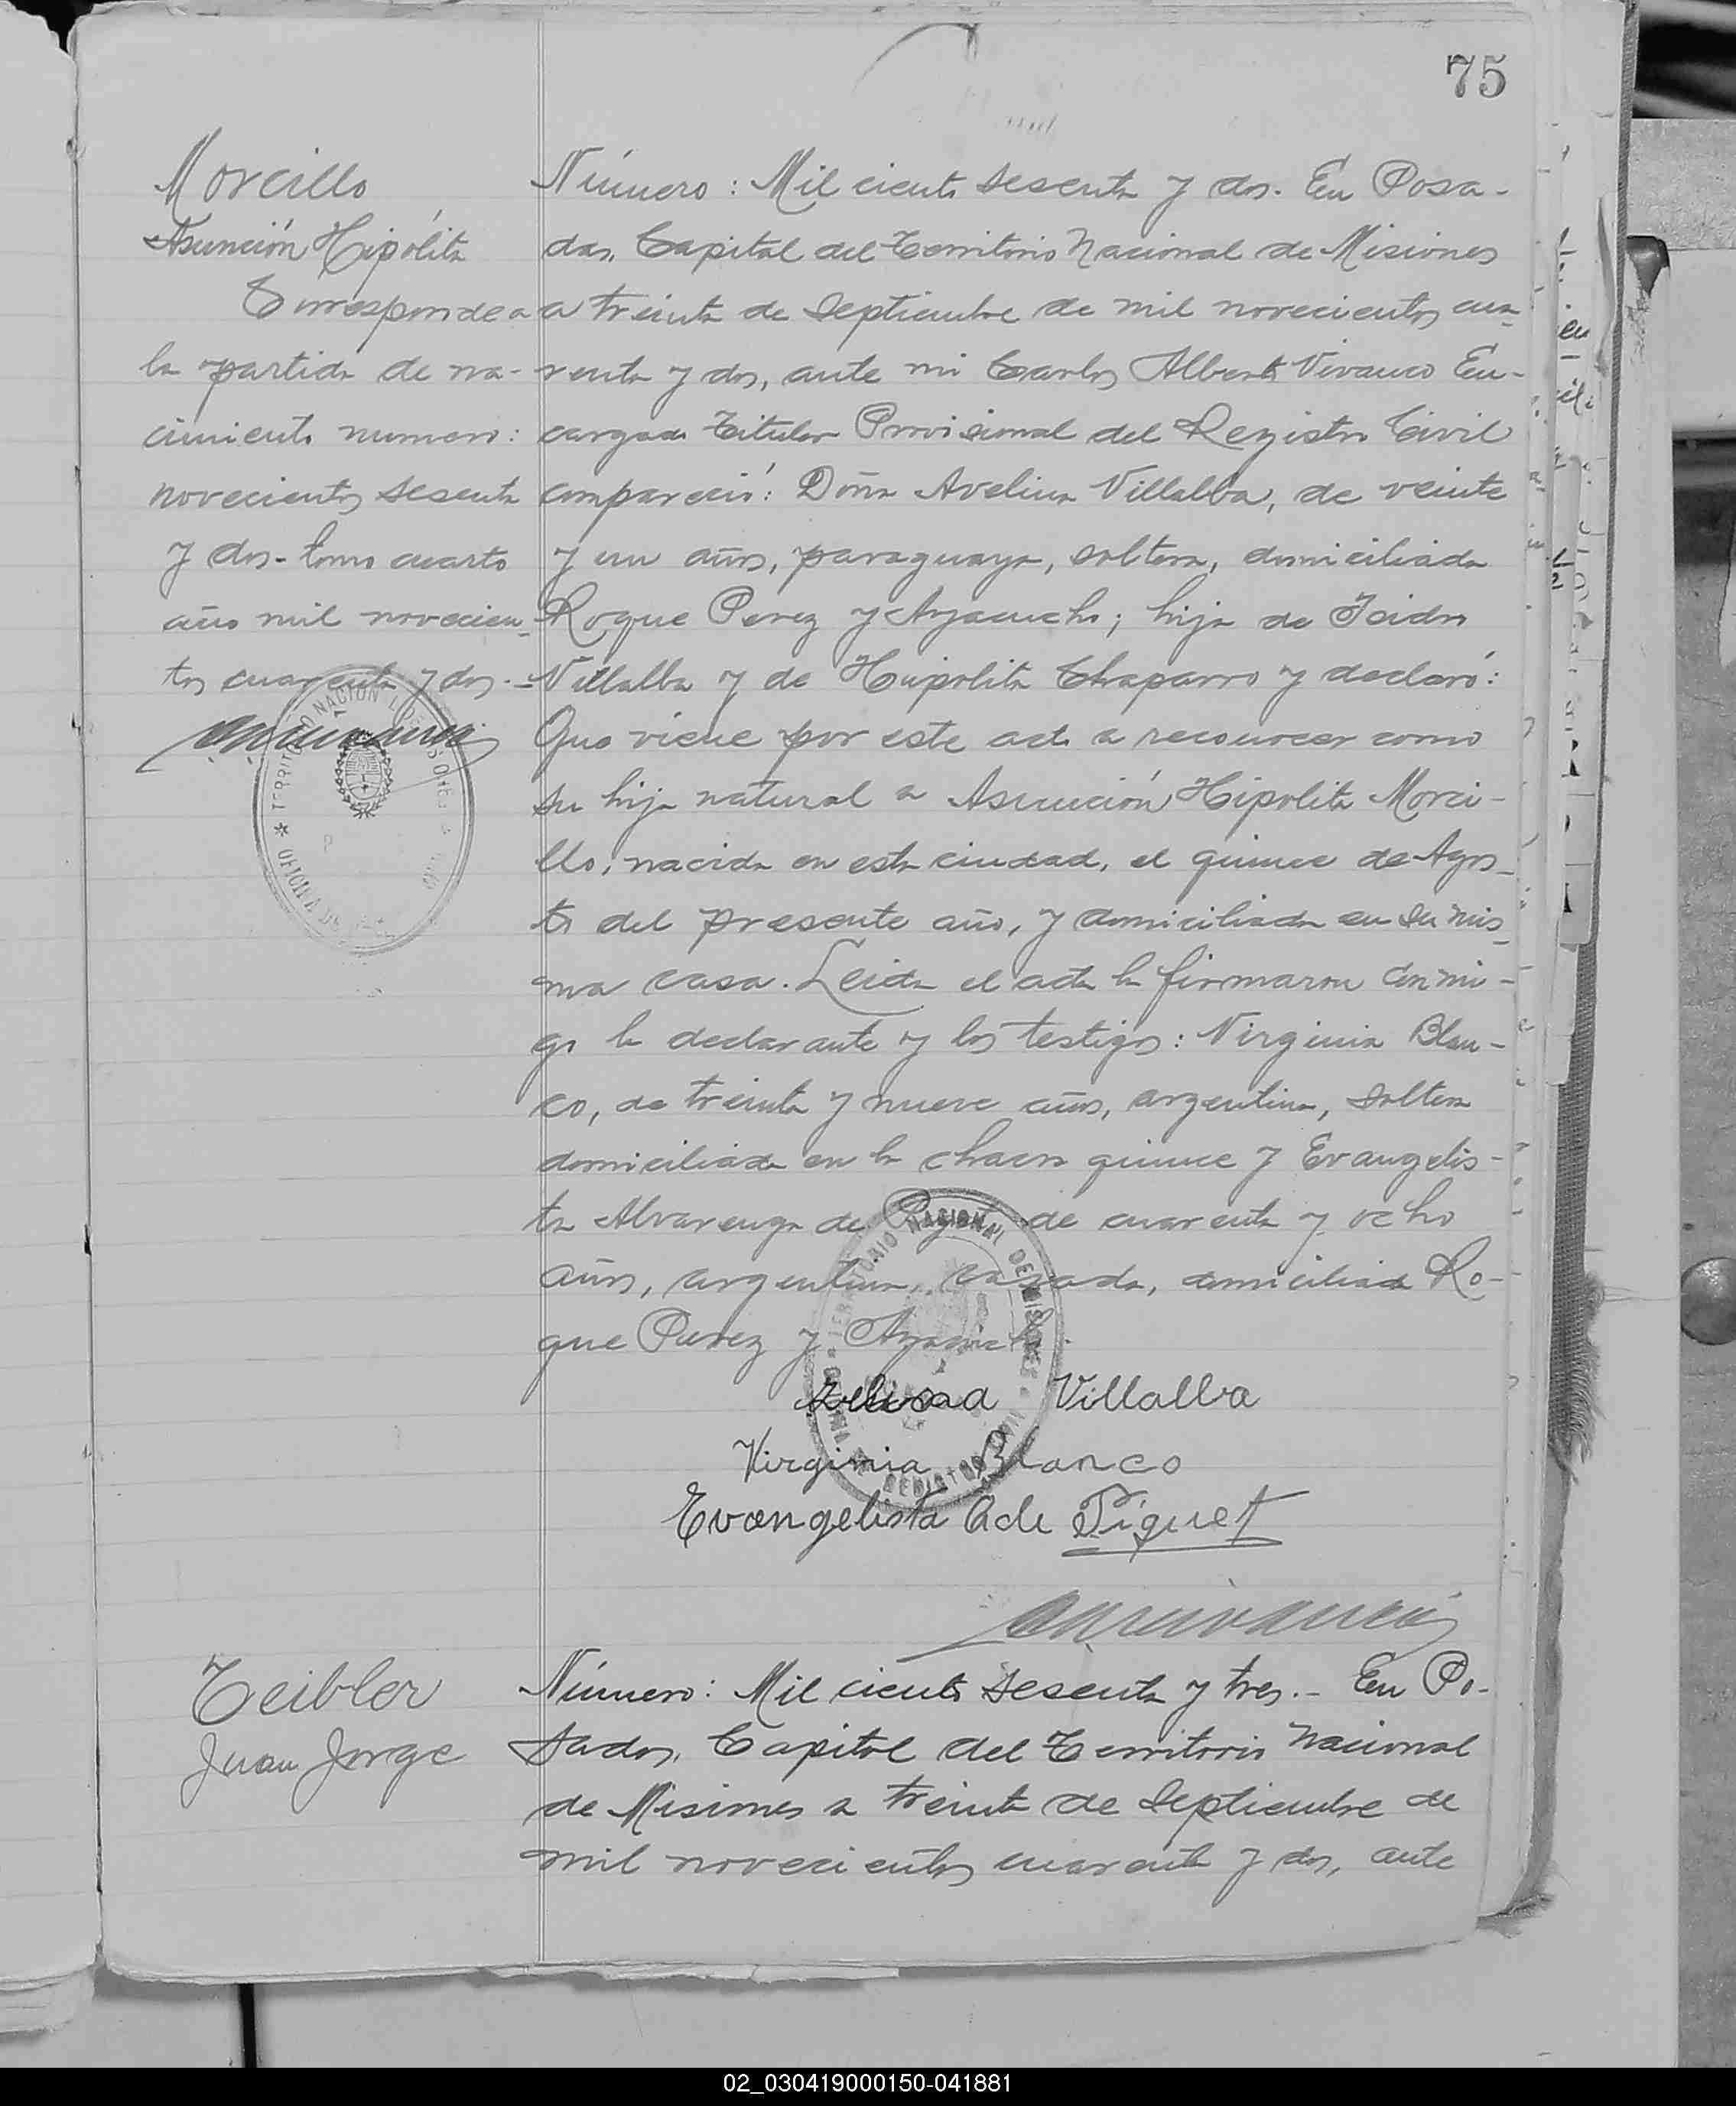 75
Morcillo
Asunción Hipólita
Corresponde a
la partida de na-
cimiento numero:
novecientos sesenta
y dos - tomo cuarto
año mil novecien-
tos cuarenta y dos. -
Número: Mil ciento sesenta y dos. En Posa-
das, Capital del Territorio Nacional de Misiones
a treinta de Septiembre de mil novecientos cua-
renta y dos, ante mi Carlos Alberto Vivanco En-
cargado Titular Provisional del Registro Civil
compareció: Doña Avelina Villalba, de veinte
y un años, paraguaya, soltera, domiciliada
Roque Perez y Ayacucho; hija de Isidro
Villalba y de Huipolita Chaparro y declaró:
Que viene por este acto a reconocer como
su hija natural a Asunción Hipolita Morci-
llo, nacida en esta ciudad, el quince de Agos-
to del presente año, y domiciliada en su mis-
ma casa. Leida el acta la firmaron conmi-
go la declarante y los testigos: Virginia Blan-
co, de treinta y nueve años, argentina, soltera
domiciliada en la chacra quince y Evangelis-
ta Alvarenga de de cuarenta y ocho
años, argentina, casada, domiciliada Ro-
que Perez y Ayacucho.
TERRITORIO NACIONAL DE MISIONES
Villalba
Virginia Blanco
Evangelista A de Piguet
Teibler
Juan Jorge
Número: Mil ciento sesenta y tres. - En Po-
sadas, Capital del Territorio Nacional
de Misiones a treinta de Septiembre de
mil novecientos cuarenta y dos, ante
02_030419000150-041881